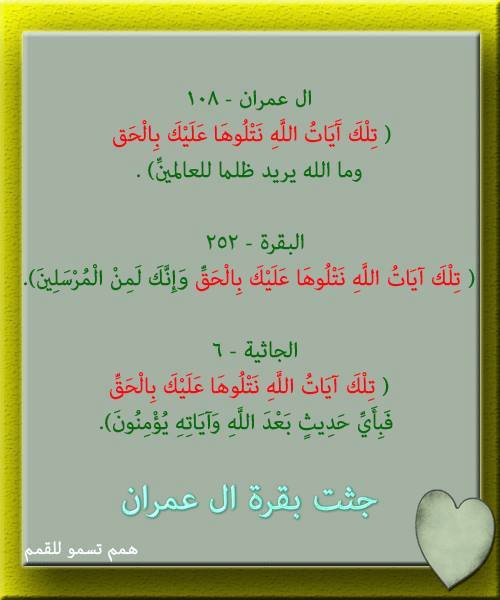 ال عمران - ١٠٨
( تِلْكَ آَيَاتُ اللَّهِ نَتْلُوهَا عَلَيْكَ بِالْحَق
وما الله يريد ظلما للعالمينِّ) .
البقرة - ٢٥٢
( تِلْكَ آيَاتُ اللَّهِ نَتْلُوهَا عَلَيْكَ بِالْحَقِّ وَإِنَّكَ لَمِنْ الْمُرْسَلِينَ).
الجاثية - ٦
( تِلْكَ آيَاتُ اللَّهِ نَتْلُوهَا عَلَيْكَ بِالْحَقِّ
فَبِأَيِّ حَدِيثٍ بَعْدَ اللَّهِ وَآيَاتِهِ يُؤْمِنُونَ).
جثت بقرة ال عمران
همم تسمو للقمم